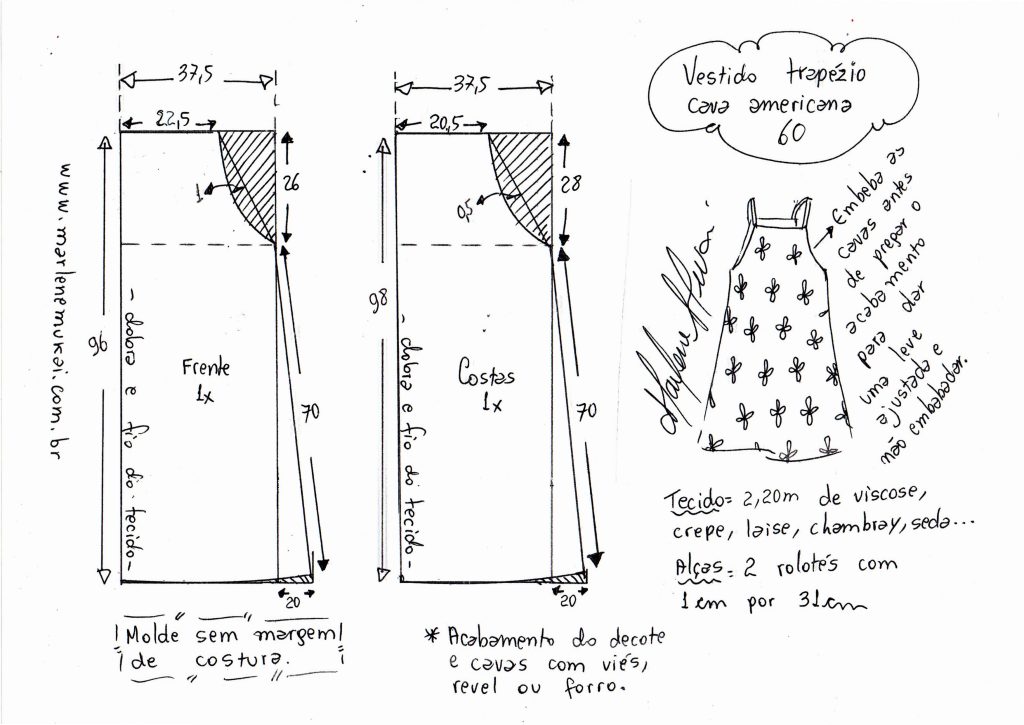 Vestido trapézio
cava americana
60
37,5
22,5
1
26
96
- dobra e fio do tecido -
Frente
1x
70
20
37,5
20,5
0,5
28
98
- dobra e fio do tecido -
Costas
1x
70
20
www.marlenemukai.com.br
Marlene Mukai
Embeba as
cavas antes
de pregar o
acabamento
para dar
uma leve
ajustada e
não embabadar.
Tecido= 2,20m de viscose,
crepe, laise, chambray, seda...
Alças= 2 rolotés com
1cm por 31cm
Molde sem margem
de costura.
* Acabamento do decote
e cavas com viés,
revel ou forro.